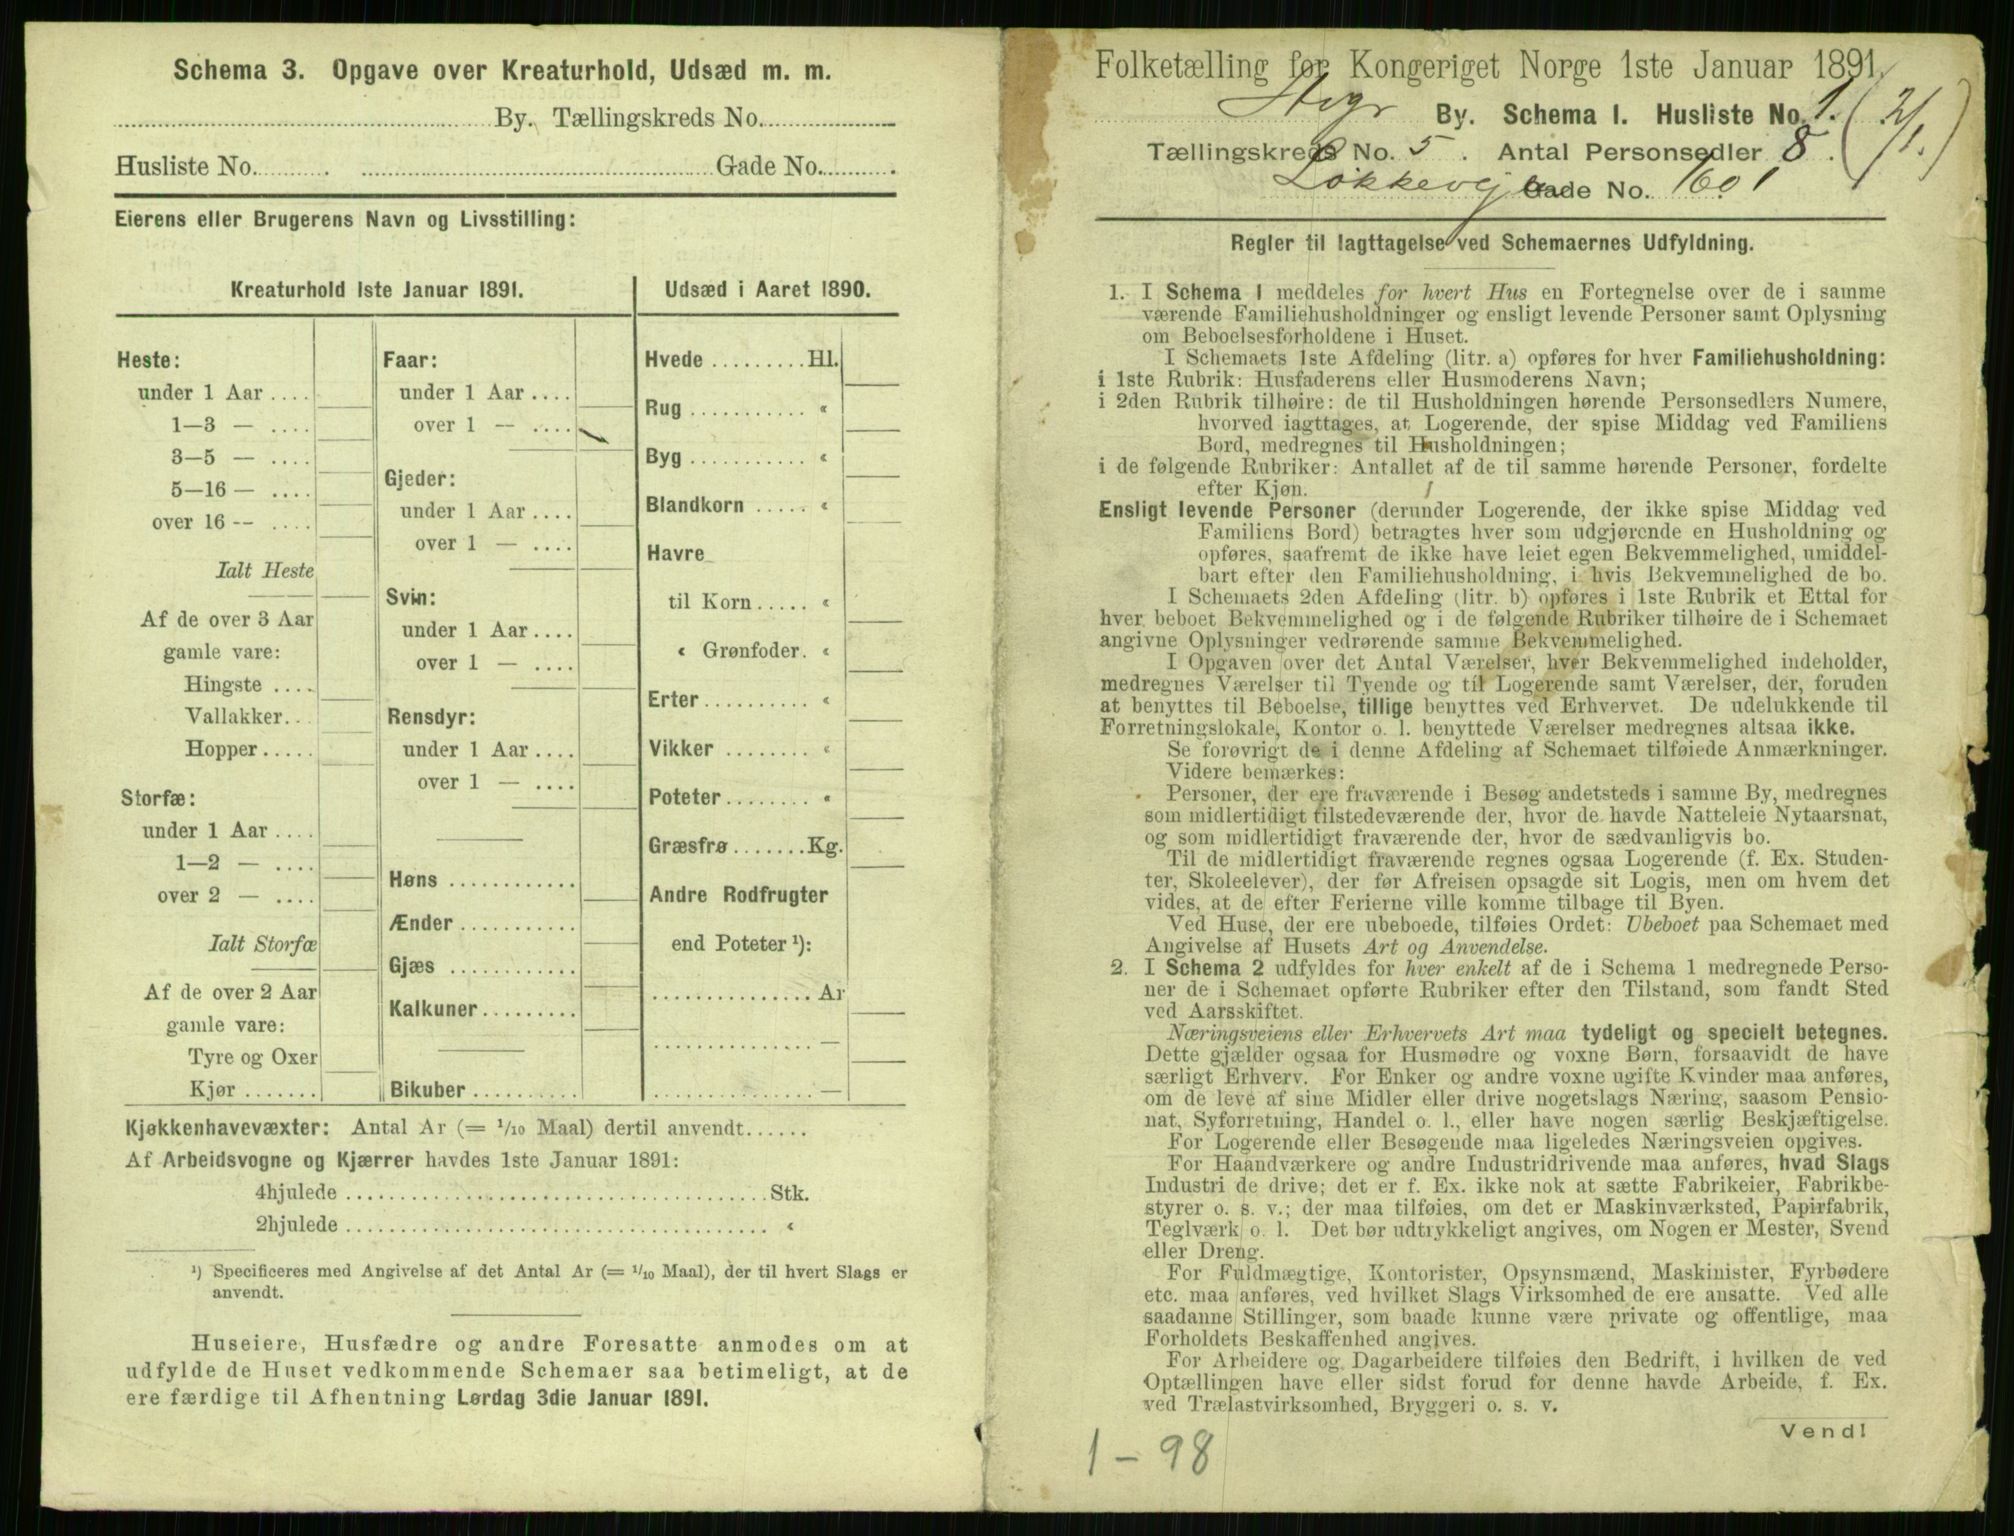 Schema 3. Opgave over Kreaturhold, Udsæd m. m.
By. Tællingskreds No.
Husliste No. Gade No.
Eierens eller Brugerens Navn og Livsstilling:
Kreaturhold 1ste Januar 1891.
Heste:
under 1 Aar ....
1—3 — ....
3—5 — ....
5—16 — ....
over 16 -- ....
Ialt Heste
Af de over 3 Aar
gamle vare:
Hingste ....
Vallakker...
Hopper.....
Storfæ:
under 1 Aar ....
1—2 — ....
over 2 — ....
Ialt Storfæ
Af de over 2 Aar
gamle vare:
Tyre og Oxer
Kjør .......
Faar:
under 1 Aar ....
over 1 — ....
Gjeder:
under 1 Aar ....
over 1 — ....
Svin:
under 1 Aar ....
over 1 — ....
Rensdyr:
under 1 Aar ....
over 1 — ....
Høns ............
Ænder ...........
Gjæs ............
Kalkuner.........
Bikuber ..........
Udsæd i Aaret 1890.
Hvede .........Hl.
Rug ........... «
Byg ........... «
Blandkorn ..... «
Havre
til Korn..... «
« Grønfoder. «
Erter.......... «
Vikker ........ «
Poteter........ «
Græsfrø.......Kg.
Andre Rodfrugter
end Poteter ¹):
............... Ar
............... —
............... —
Kjøkkenhavevæxter: Antal Ar (= 1/10 Maal) dertil anvendt......
Af Arbeidsvogne og Kjærrer havdes 1ste Januar 1891:
4hjulede ...................................... Stk.
2hjulede ...................................... «
¹) Specificeres med Angivelse af det Antal Ar (= 1/10 Maal), der til hvert Slags er
anvendt.
Huseiere, Husfædre og andre Foresatte anmodes om at
udfylde de Huset vedkommende Schemaer saa betimeligt, at de
ere færdige til Afhentning Lørdag 3die Januar 1891.
Folketælling for Kongeriget Norge 1ste Januar 1891.
By. Schema I. Husliste No. 1. (2/1.)
Tællingskreds No. 5. Antal Personsedler 8.
Løkkevejen Gade No. 160
Regler til Iagttagelse ved Schemaernes Udfyldning.
1. I Schema I meddeles for hvert Hus en Fortegnelse over de i samme
værende Familiehusholdninger og ensligt levende Personer samt Oplysning
om Beboelsesforholdene i Huset.
I Schemaets 1ste Afdeling (litr. a) opføres for hver Familiehusholdning:
i 1ste Rubrik: Husfaderens eller Husmoderens Navn;
i 2den Rubrik tilhøire: de til Husholdningen hørende Personsedlers Numere,
hvorved iagttages, at Logerende, der spise Middag ved Familiens
Bord, medregnes til Husholdningen;
i de følgende Rubriker: Antallet af de til samme hørende Personer, fordelte
efter Kjøn.
Ensligt levende Personer (derunder Logerende, der ikke spise Middag ved
Familiens Bord) betragtes hver som udgjørende en Husholdning og
opføres, saafremt de ikke have leiet egen Bekvemmelighed, umiddel-
bart efter den Familiehusholdning, i hvis Bekvemmelighed de bo.
I Schemaets 2den Afdeling (litr. b) opføres i 1ste Rubrik et Ettal for
hver beboet Bekvemmelighed og i de følgende Rubriker tilhøire de i Schemaet
angivne Oplysninger vedrørende samme Bekvemmelighed.
I Opgaven over det Antal Værelser, hver Bekvemmelighed indeholder,
medregnes Værelser til Tyende og til Logerende samt Værelser, der, foruden
at benyttes til Beboelse, tillige benyttes ved Erhvervet. De udelukkende til
Forretningslokale, Kontor o. l. benyttede Værelser medregnes altsaa ikke.
Se forøvrigt de i denne Afdeling af Schemaet tilføiede Anmærkninger.
Videre bemærkes:
Personer, der ere fraværende i Besøg andetsteds i samme By, medregnes
som midlertidigt tilstedeværende der, hvor de havde Natteleie Nytaarsnat,
og som midlertidigt fraværende der, hvor de sædvanligvis bo.
Til de midlertidigt fraværende regnes ogsaa Logerende (f. Ex. Studen-
ter, Skoleelever), der før Afreisen opsagde sit Logis, men om hvem det
vides, at de efter Ferierne ville komme tilbage til Byen.
Ved Huse, der ere ubeboede, tilføies Ordet: Ubeboet paa Schemaet med
Angivelse af Husets Art og Anvendelse.
2. I Schema 2 udfyldes for hver enkelt af de i Schema 1 medregnede Perso-
ner de i Schemaet opførte Rubriker efter den Tilstand, som fandt Sted
ved Aarsskiftet.
Næringsveiens eller Erhvervets Art maa tydeligt og specielt betegnes.
Dette gjælder ogsaa for Husmødre og voxne Børn, forsaavidt de have
særligt Erhverv. For Enker og andre voxne ugifte Kvinder maa anføres,
om de leve af sine Midler eller drive nogetslags Næring, saasom Pensio-
nat, Syforretning, Handel o. l., eller have nogen særlig Beskjæftigelse.
For Logerende eller Besøgende maa ligeledes Næringsveien opgives.
For Haandværkere og andre Industridrivende maa anføres, hvad Slags
Industri de drive; det er f. Ex. ikke nok at sætte Fabrikeier, Fabrikbe-
styrer o. s. v.; der maa tilføies, om det er Maskinværksted, Papirfabrik,
Teglværk o. l. Det bør udtrykkeligt angives, om Nogen er Mester, Svend
eller Dreng.
For Fuldmægtige, Kontorister, Opsynsmænd, Maskinister, Fyrbødere
etc. maa anføres, ved hvilket Slags Virksomhed de ere ansatte. Ved alle
saadanne Stillinger, som baade kunne være private og offentlige, maa
Forholdets Beskaffenhed angives.
For Arbeidere og Dagarbeidere tilføies den Bedrift, i hvilken de ved
Optællingen have eller sidst forud for denne havde Arbeide, f. Ex.
ved Trælastvirksomhed, Bryggeri o. s. v.
Vend!
1 - 98